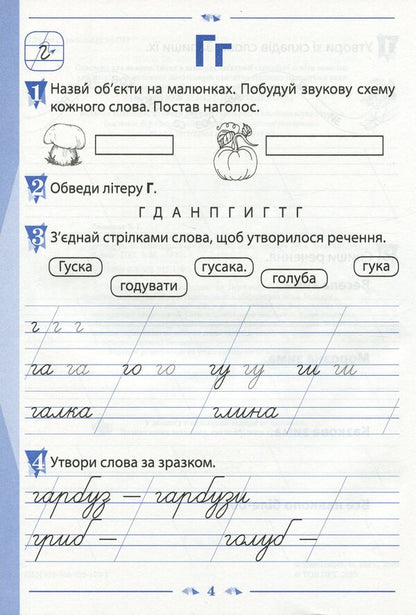 г
Гг
1 Назви́ об’єкти на малюнках. Побудуй звукову схему
кожного слова. Постав наголос.
2 Обведи літеру Г.
Г Д А Н П Г И Г Т Г
3 З’єднай стрілками слова, щоб утворилося речення.
Гуска гусака. гука
годувати голуба
г г г
га га го го гу гу ги ги
галка глина
4 Утвори слова за зразком.
гарбуз — гарбузи
гриб — голуб —
4